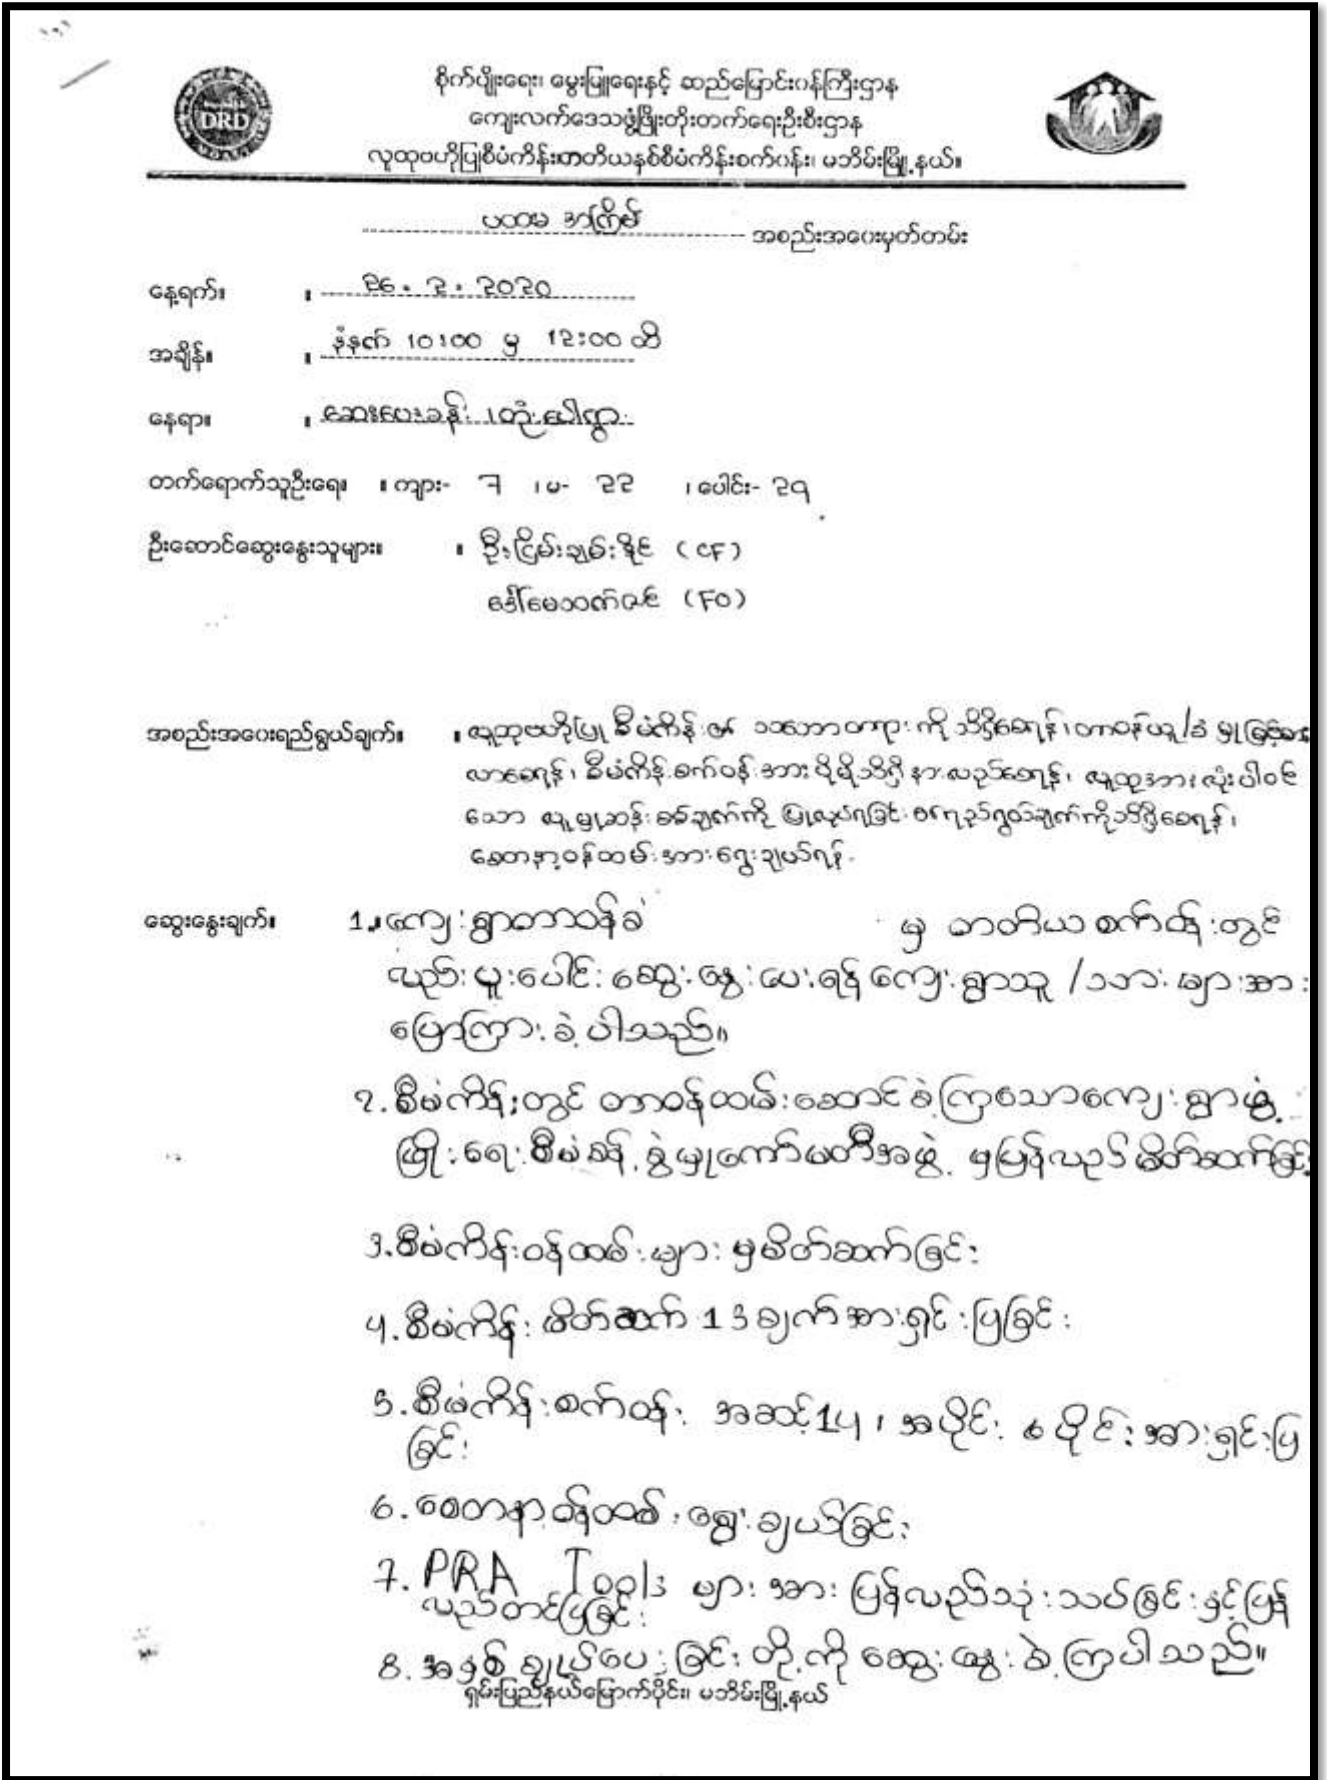 စိုက်ပျိုးရေး၊ မွေးမြူရေးနှင့် ဆည်မြောင်းဝန်ကြီးဌာန
DRD
ကျေးလက်ဒေသဖွံ့ဖြိုးတိုးတက်ရေးဦးစီးဌာန
လူထုဗဟိုပြုစီမံကိန်းတတိယနှစ်စီမံကိန်းစက်ဝန်း၊ မဘိမ်းမြို့နယ်။
ပထမ အကြိမ် အစည်းအဝေးမှတ်တမ်း
နေ့ရက်။ ။ 26.2.2020
အချိန်။ ။ နံနက် 10:00 မှ 12:00 ထိ
နေရာ။ ။ ဆေးပေးခန်း ၊တုံးပေါ်ရွာ
တက်ရောက်သူဦးရေ။ ။ ကျား- 7 ၊ မ- 22 ၊ ပေါင်း- 29
ဦးဆောင်ဆွေးနွေးသူများ။ ။ ဦးငြိမ်းချမ်းနိုင် (CF)
ဒေါ်မေသက်ဇင် (FO)
အစည်းအဝေးရည်ရွယ်ချက်။ ။ လူထုဗဟိုပြု စီမံကိန်း၏ သဘောတရား ကို သိရှိစေရန်၊ တာဝန်ယူ/ခံ မှု မြင့်မား
လာစေရန်၊ စီမံကိန်းစက်ဝန်းအား ပိုမိုသိရှိ နားလည်စေရန်၊ လူထုအားလုံးပါဝင်
သော လူမှုဆန်းစစ်ချက်ကို ပြုလုပ်ရခြင်း၏ရည်ရွယ်ချက်ကိုသိရှိစေရန်၊
စေတနာ့ဝန်ထမ်းအားရွေးချယ်ရန်.
ဆွေးနွေးချက်။ 1.။ကျေးရွာတာဝန်ခံ မှ တတိယ စက်ဝန်းတွင်
လည်း ပူးပေါင်း ဆွေးနွေးပေးရန် ကျေးရွာသူ /သား များအား
ပြောကြားခဲ့ပါသည်။
2. စီမံကိန်းတွင် တာဝန်ထမ်းဆောင်ခဲ့ကြသောကျေးရွာဖွံ့
ဖြိုးရေးစီမံခန့်ခွဲမှုကော်မတီအဖွဲ့ မှပြန်လည်မိတ်ဆက်ခြင်း
3. စီမံကိန်းဝန်ထမ်းများ မှမိတ်ဆက်ခြင်း
4. စီမံကိန်း မိတ်ဆက် 13 ချက်အားရှင်းပြခြင်း
5. စီမံကိန်းစက်ဝန်း အဆင့်14 ၊ အပိုင်း 6 ပိုင်းအားရှင်းပြ
ခြင်း
6. စေတနာ့ဝန်ထမ်းရွေးချယ်ခြင်း
7. PRA Tools များ အား ပြန်လည်သုံးသပ်ခြင်းနှင့်ပြန်
လည်တင်ပြခြင်း
8. အနှစ်ချုပ်ပေးခြင်း တို့ကို ဆွေးနွေးခဲ့ကြပါသည်။
ရှမ်းပြည်နယ်မြောက်ပိုင်း။ မဘိမ်းမြို့နယ်